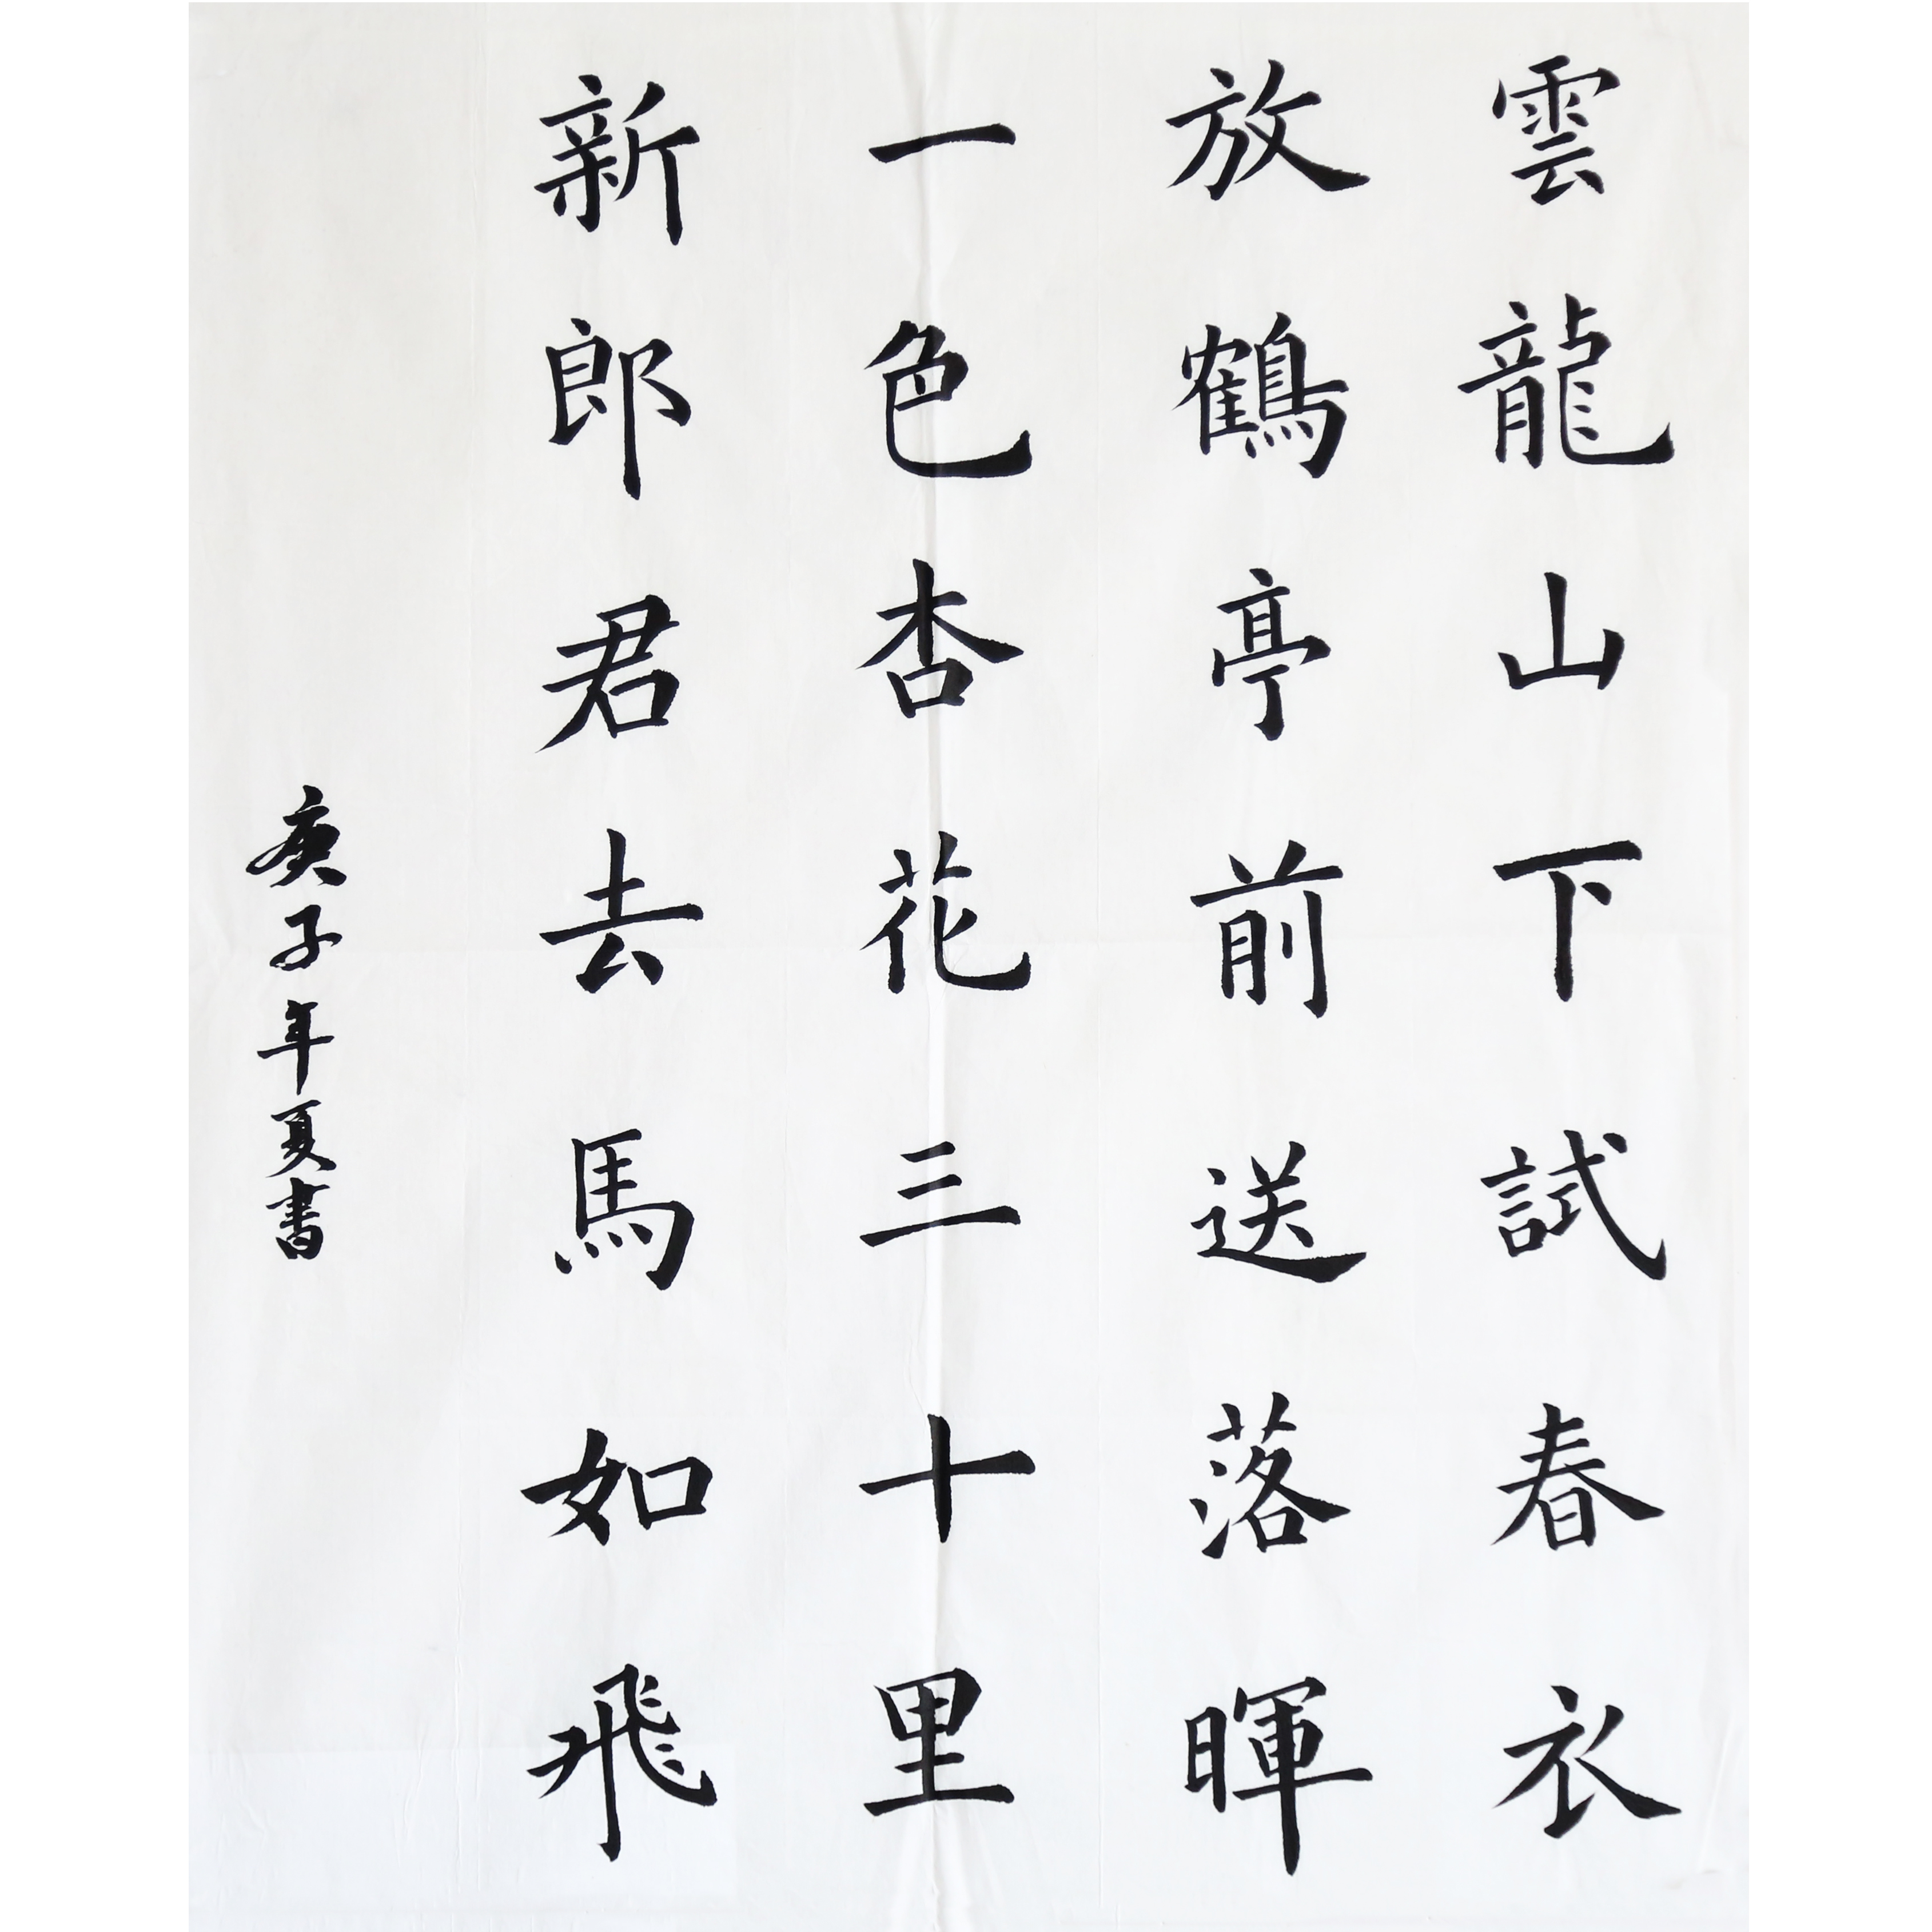 雲龍山下試春衣
放鶴亭前送落暉
一色杏花三十里
新郎君去馬如飛
庚子年夏書